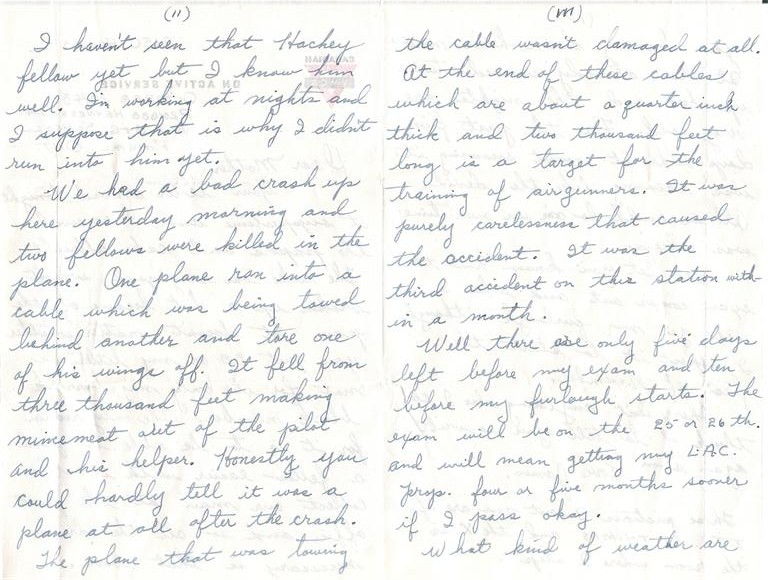 (11)
I haven't seen that Hachey
fellow yet but I know him
well. I'm working at nights and
I suppose that is why I didn't
run into him yet.
We had a bad crash up
here yesterday morning and
two fellows were killed in the
plane. One plane ran into a
cable which was being towed
behind another and tore one
of his wings off. It fell from
three thousand feet making
mincemeat out of the pilot
and his helper. Honestly you
could hardly tell it was a
plane at all after the crash.
The plane that was towing
(111)
the cable wasn't damaged at all.
At the end of these cables
which are about a quarter inch
thick and two thousand feet
long is a target for the
training of airgunners. It was
purely carelessness that caused
the accident. It was the
third accident on this station with-
in a month.
Well there are only five days
left before my exam and ten
before my furlough starts. The
exam will be on the 25 or 26 th.
and will mean getting my L.A.C.
prop. four or five months sooner
if I pass okay.
What kind of weather are